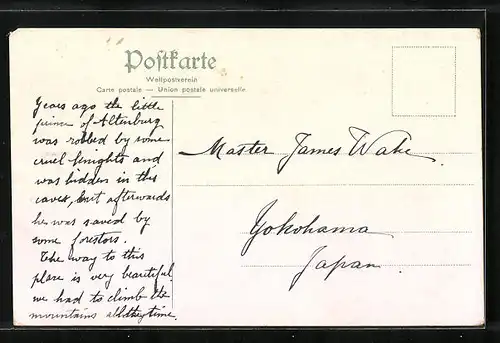 Postkarte
Weltpostverein
Carte postale — Union postale universelle
Years ago the little
prince of Altenburg
was robbed by some
cruel knights and
was hidden in this
caves, but afterwards
he was saved by
some forestors.
The way to this
place is very beautiful,
we had to climb the
mountains all the time.
Master James Wake
Yokohama
Japan.